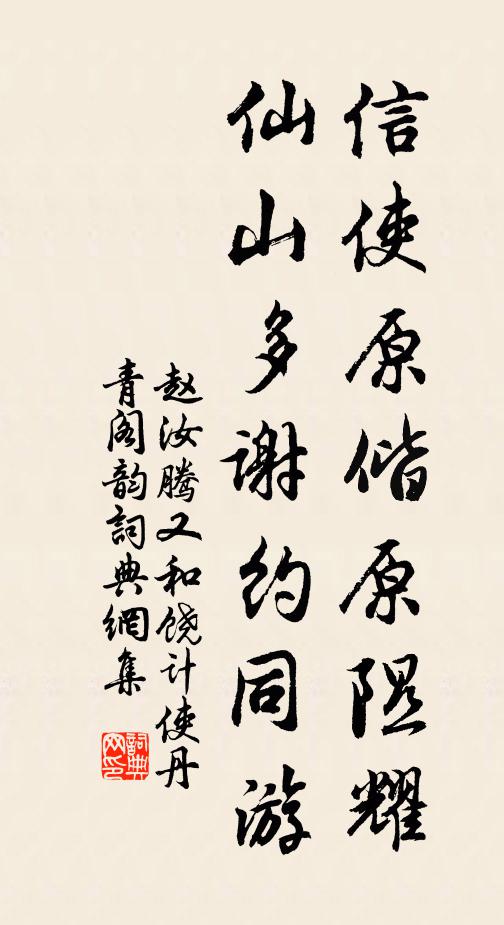 信使原偕原隰耀
仙山多谢约同游
赵汝腾又和饶计使丹
青阁韵詞典網集
詞典网印